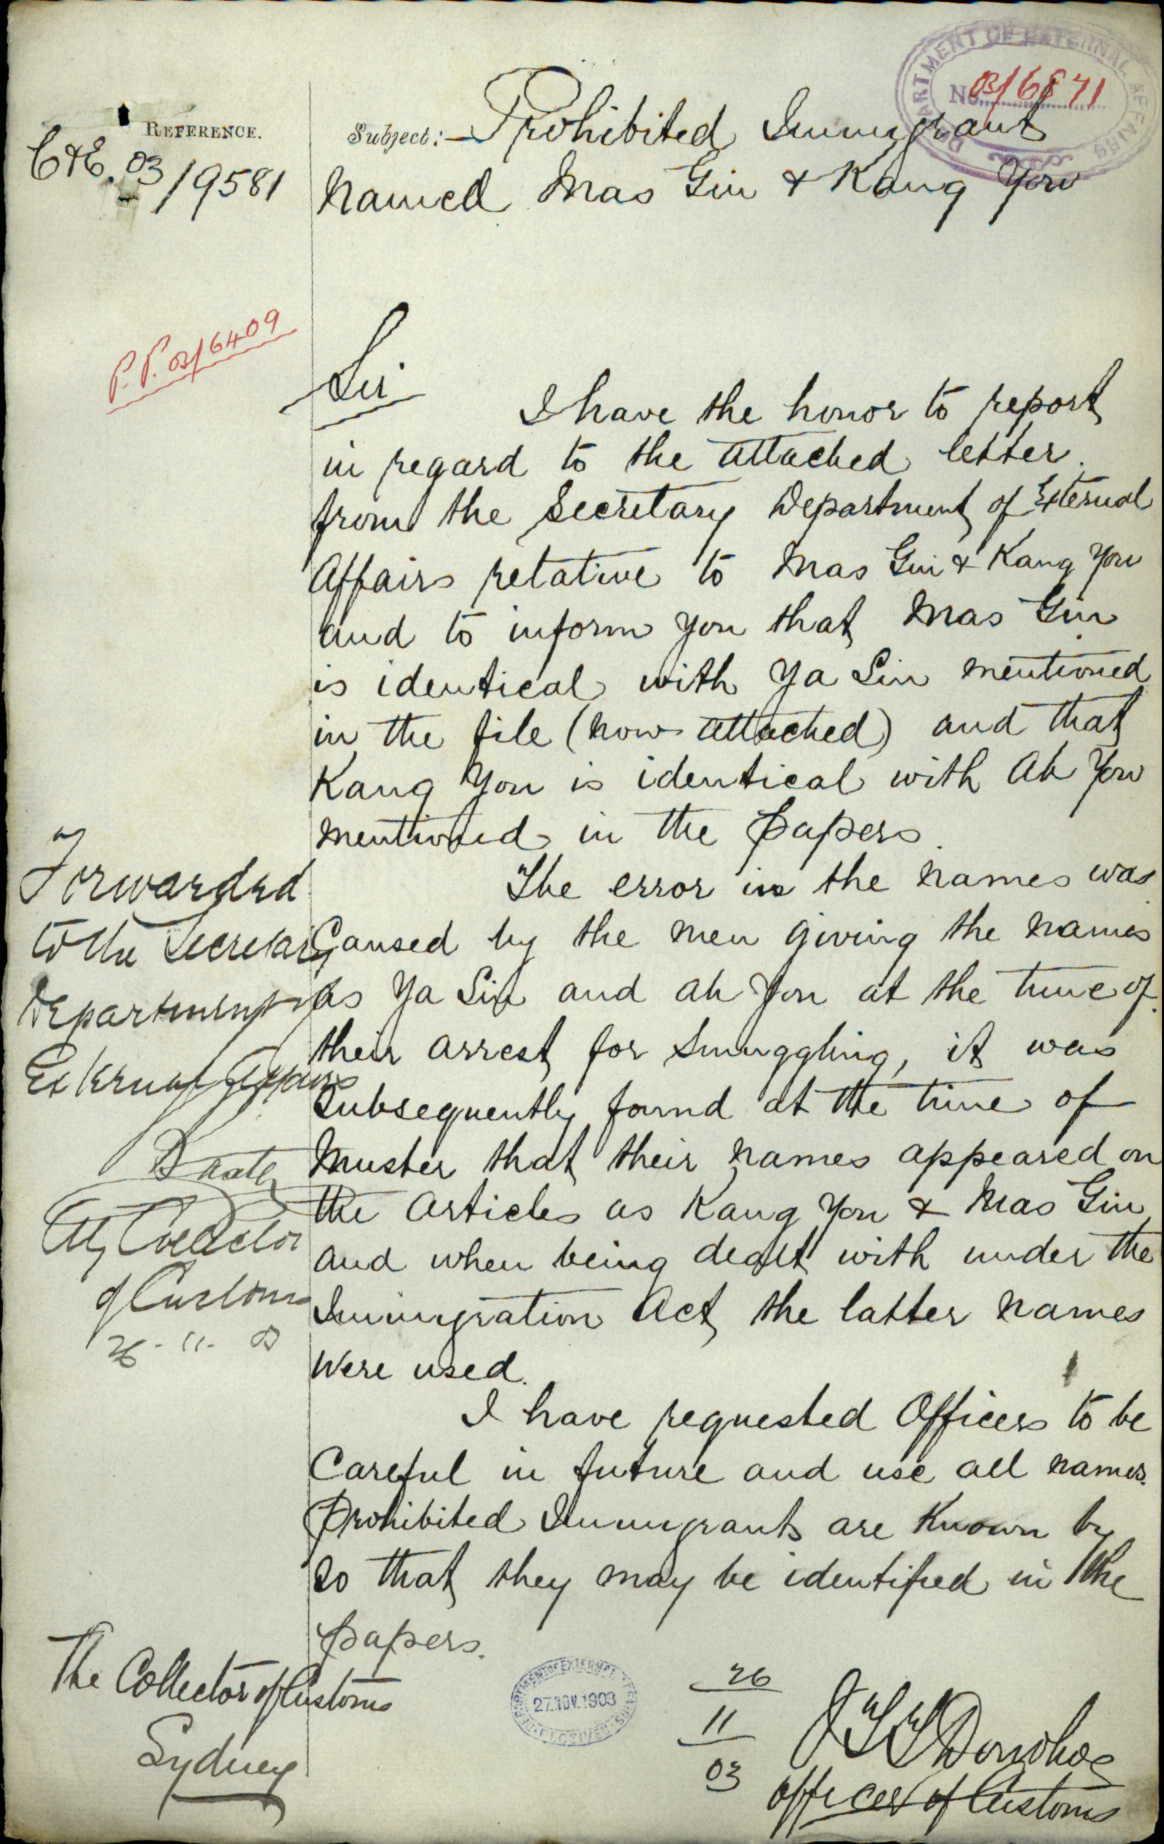 DEPARTMENT OF EXTERNAL AFFAIRS
No. 03/6871
REFERENCE.
C&E. 03/9581
Subject:- Prohibited Immigrant
named Mas Gin & Kang You
P.P. 03/6409
Sir
I have the honor to report
in regard to the attached letter
from the Secretary Department of External
Affairs relative to Mas Gin & Kang You
and to inform you that Mas Gin
is identical with Ya Sin mentioned
in the file (now attached) and that
Kang You is identical with Ah You
mentioned in the papers.
The error in the names was
Caused by the men giving the names
as Ya Sin and Ah You at the time of
their arrest for smuggling, it was
subsequently found at the time of
Muster that their names appeared on
the Articles as Kang You & Mas Gin
and when being dealt with under the
Immigration Act, the latter names
were used.
I have requested Officers to be
Careful in future and use all names
Prohibited Immigrants are known by
so that they may be identified in the
papers.
Forwarded
to the Secretary
Department of
External Affairs
Actg Collector
of Customs
26-11-03
The Collector of Customs
Sydney
DEPARTMENT OF EXTERNAL AFFAIRS
27. NOV. 1903
26
11
03
Donohoe
Officer of Customs